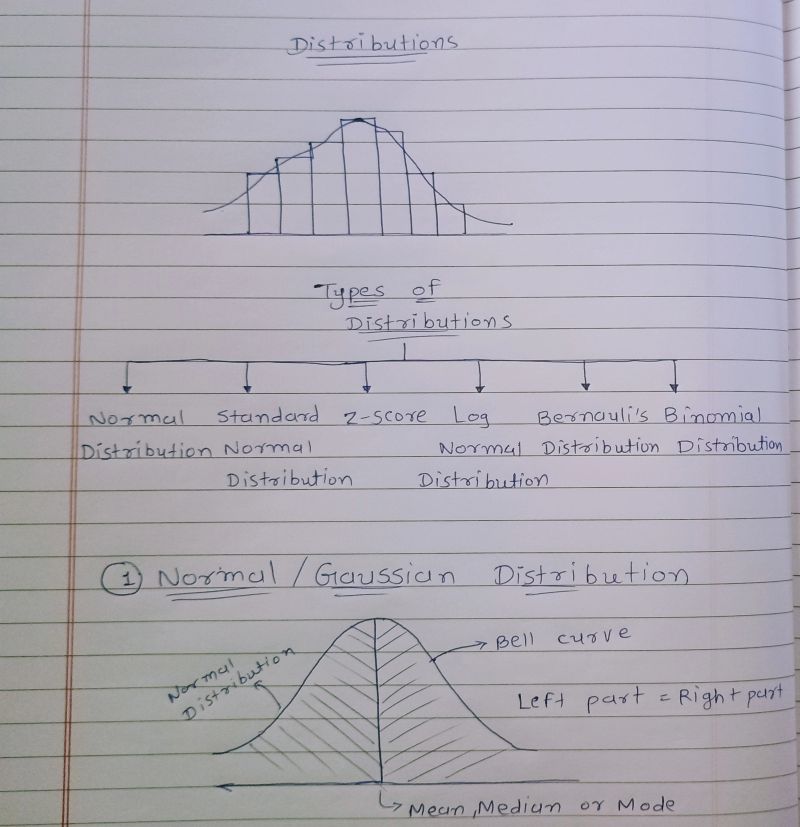 Distributions
Types of
Distributions
Normal Standard Z-score Log Bernauli's Binomial
Distribution Normal Normal Distribution Distribution
Distribution Distribution
① Normal / Gaussian Distribution
Bell curve
Normal
Distribution
Left part = Right part
Mean, Median or Mode